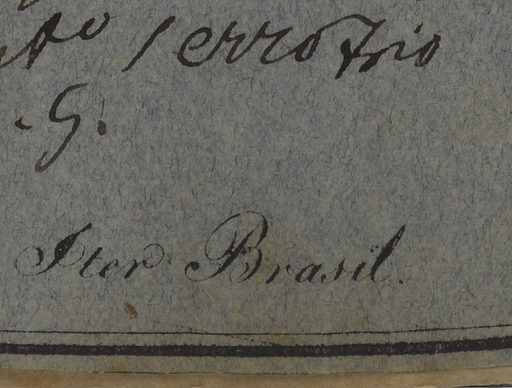 Serro Frio
.G.
Iter Brasil.